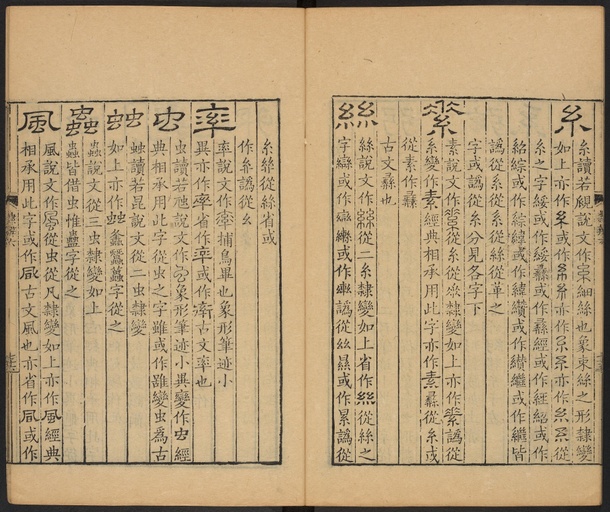 糸 糸讀若覛說文作糸細絲也象束絲之形隸變
如上亦作糸或作糸亦作糸亦作糸糸從
糸之字綏或作綏彝或作彝經或作經紹或作
紹綜或作綜繂或作繂纘或作纘繼或作繼皆
譌從糸從系從絲從革之
字或譌從糸分見各字下
素 素說文作素從糸從𠂹隸變如上亦作素譌從
糸變作素經典相承用此字亦作素彝從糸或
從素作彝
古文彝也
絲 絲說文作絲從二糸隸變如上省作絲從絲之
字或作譌從㬎或作累譌從
糸絲從絲省或
作𢆶譌從幺
率 率說文作率捕鳥畢也象形筆迹小
異亦作率省作率或作率古文率也
虫 虫讀若虺說文作虫象形筆迹小異變作虫經
典相承用此字從虫之字雖或作雖變虫爲古
䖵 䖵讀若昆說文從二虫隸變
如上亦作䖵螽蠶蠭字從之
蟲 蟲說文從三虫隸變如上
蟲皆借虫惟蠱字從之
風 風說文作風從虫從凡隸變如上亦作風經典
相承用此字或作凨古文風也亦省作凨或作